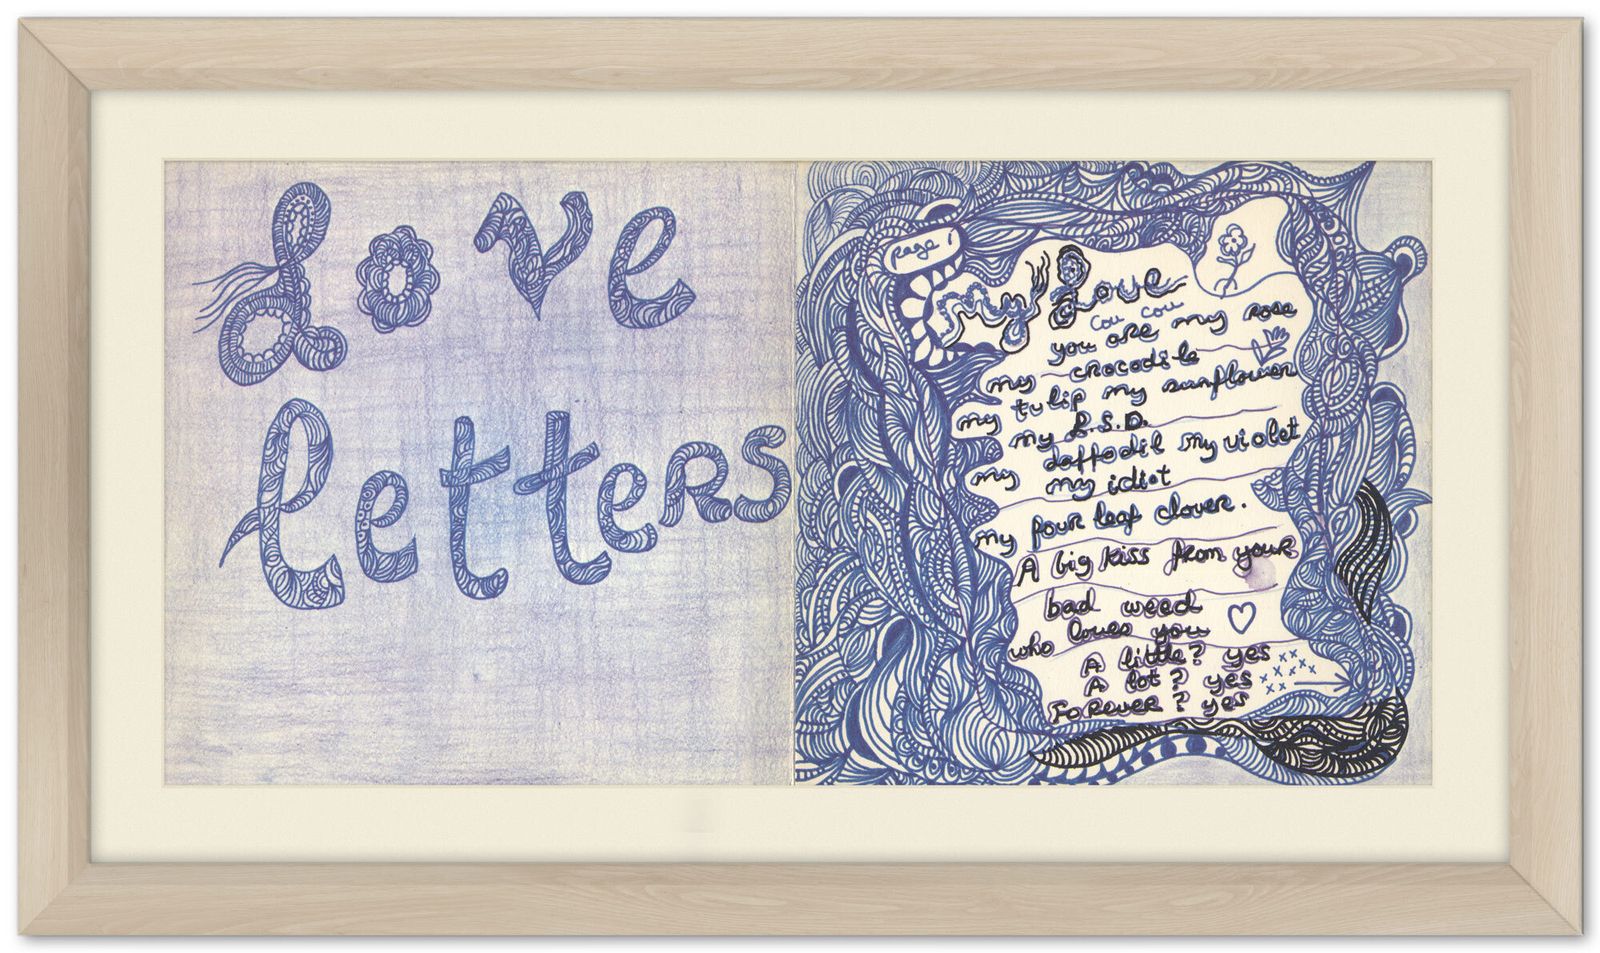 Love
letters
page 1
my Love
cou cou
you are my rose
my crocodile
my tulip my sunflower
my L.S.D.
my daffodil my violet
my idiot
my four leaf clover.
A big kiss from your
bad weed
who loves you
A little? yes
A lot? yes
Forever? yes